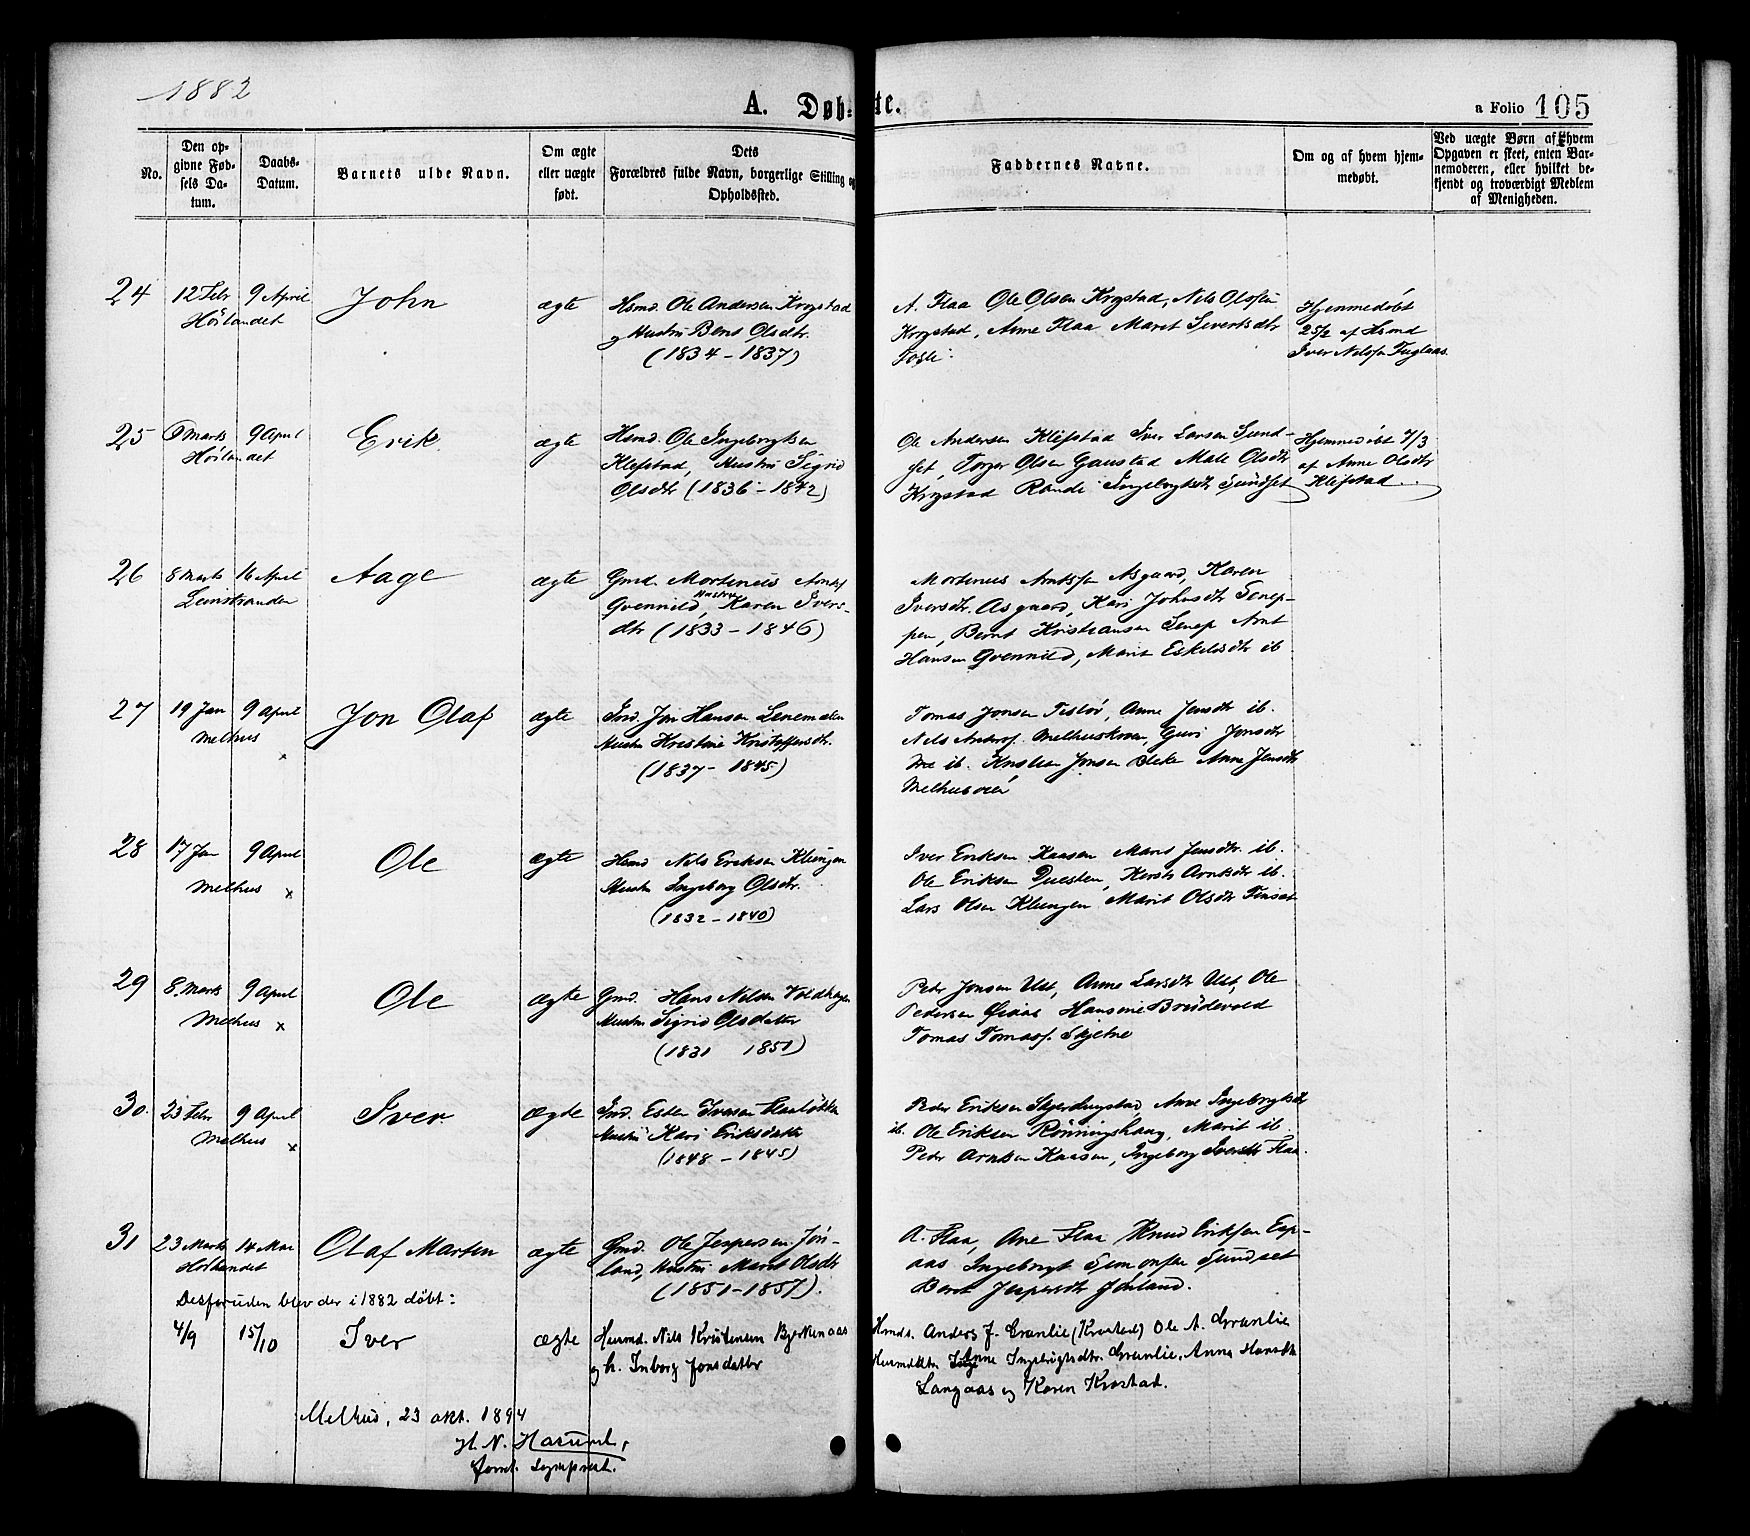 1882
A. Døb- te.
a Folio 105
No.
Den op-
givne Fød-
sels Da-
tum.
Daabs-
Datum.
Barnets ulde Navn.
Om ægte
eller uægte
født.
Dets
Forældres fulde Navn, borgerlige Stilling og
Opholdssted.
Faddernes Navne.
Om og af hvem hjem-
medøbt.
Ved uægte Børn af hvem
Opgaven er skeet, enten Bar-
nemoderen, eller hvilket be-
kjendt og troværdigt Medlem
af Menigheden.
24 12 Febr 9 April John ægte
Høilandet
Hsmd. Ole Andersen Krogstad
og Hustru Berit Olsdtr.
(1834 - 1837)
A. Flaa Ole Olsen Krogstad, Nils Olsen
Krogstad, Anne Flaa Maret Sivertsdtr
Hjemmedøbt
25/2 af Hsmd
Iver Nilssen Fuglaas
25 Marts 9 April Erik ægte
Høilandet
Hsmd. Ole Ingebrigtsen
Klefstad, Hustru Sigrid
Olsdtr (1836 - 1842)
Ole Andersen Klefstad Iver Larsen Sund-
set, Olsen Gaustad Male Olsdtr
Krogstad Rande Ingebrigtsdtr Sundset
Hjemmedøbt 7/3
af Anne Olsdtr
Klefstad
26 8 Marts 16 April Aage ægte
Leinstranden
Gmd. Mortinius Arntsf
Gvennild, Hustru Karen Ivers-
dtr (1833 - 1846)
Mortinus Arntssen Asgaard, Karen
Iversdtr. Asgaard, Kari Johnsdtr
Bernt Kristiansen Arnt
Hansen Gvennild, Marit Eskilsdtr ib
27 19 Jan 9 April Jon Olaf ægte
Melhus x
Ind. Jon Hansen
Hustru Kristine Kristoffersdtr.
(1837 - 1845)
Tomas Jonsen Anne Jensdtr ib.
Nils Guri Jonsdtr
ib. Kristian Jonsen Anne Jensdtr
28 17 Jan 9 April Ole ægte
Melhus x
Hsmd Nils Eriksen Klungen
Hustru Ingeborg Olsdtr.
(1832 - 1840)
Iver Eriksen Kaasen Marit Jensdtr. ib.
Ole Eriksen Kirsti Arntsdtr ib.
Lars Olsen Klungen Marit Olsdtr
29 8. Marts 9 April Ole ægte
Melhus x
Gmd. Hans Nilsen
Hustru Sigrid Olsdatter
(1831 1851)
Peder Jonsen Ust, Anne Larsdtr Ust, Ole
Pedersen Hansine
Tomas Tomass. Skjetne
30. 23 Febr 9 April Iver. ægte
Melhus x
Ind. Esten Iversen
Hustru Kari Eriksdatter
(1848 - 1845)
Peder Eriksen Anne Ingebrigtsdtr
ib. Ole Eriksen Rønningshaug, Marit ib.
Peder Arntsen Kaasen, Ingeborg Iversdtr Flaa.
31 23 Marts 14 Mai Olaf Martin ægte
Høilandet
Gmd. Ole Jespersen Jør-
land, Hustru Marit Olsdtr
(1851 - 1857).
A. Flaa, Ane Flaa Knud Eriksen Esp-
aas Ingebrigt Simonsen Sundset
Berit Jespersdtr Jørland.
Desforuden blev der i 1882 døbt:
4/9 15/10 Iver ægte
Husmd. Nils Kristensen Bjerkenaas
og h. Inborg Jonsdatter
Hmds. Anders J. Granlie (Krostad) Ole A. Granlie
Anne Ingebrigtsdtr. Granlie, Anna Hansdtr
Langaas og Karen Krostad.
Melhus, 23 okt. 1894